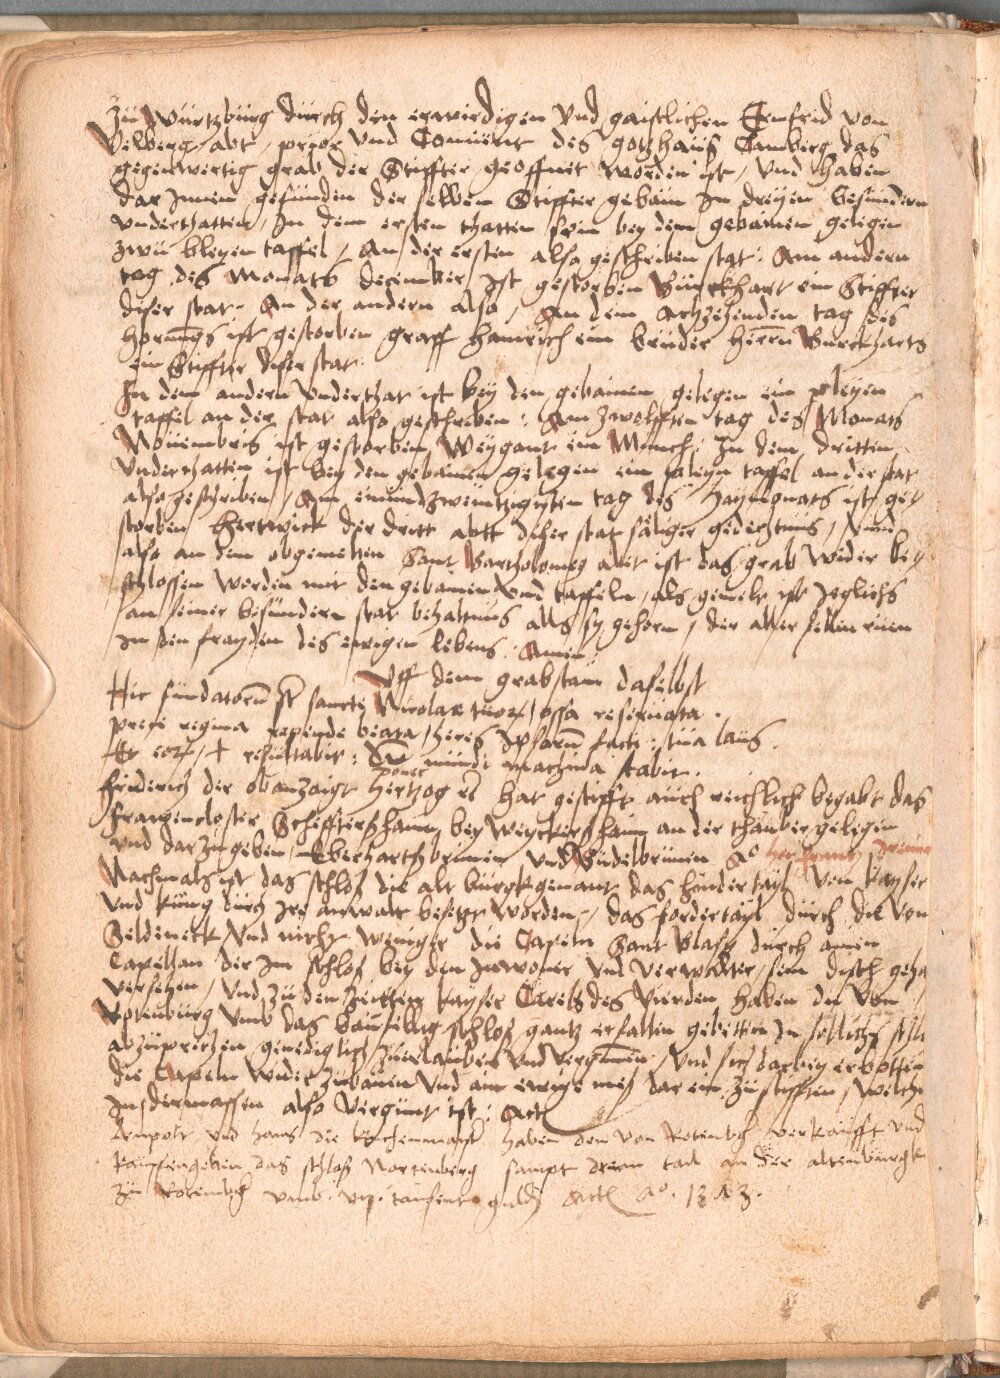 zu Würtzburg durch den erwirdigen Und gaistlichen Ernfrid von
Velberg abt, prior Und Convent des gotzhaus Camberg das
gegenwertig grab der Stiffter geoffnet worden ist, Und haben
dar Innen gefunden der selben Stiffter gebain In dreyen besundern
underthatten, In dem ersten thatten sein bey dem gebainen gelegen
zwu bleyen taffel, An der ersten also geschriben stat: Am andern
tag des Monats december Ist gestorben Burckhart ein Stiffter
diser stat. An der andern also, An dem Achzehenden tag des
hornungs ist gestorben graff hainrich ein bruder herrn Burckharts
ein Stiffter diser stat.
In dem andern underthat ist bey den gebainen gelegen ein pleyen
taffel an der stat also geschriben: Am zwolfften tag des Monats
Novembris ist gestorben Weygant ein Münch. In dem dritten
underthatten ist bey den gebainen gelegen ein pleyin taffel an der stat
also geschriben, Am einundzwentzigisten tag des haymonats ist ge/
storben Hertwick der dritt abtt diser stat säliger gedechtnus, Unnd
also an dem obgemelten Sant Bartholomeg abet ist das grab wider be/
schlossen worden mit den gebainen Und taffeln, als gemelt ist Jeglichs
an seiner besundern stat behaltnus alls sy gehorn, der aller sellen ruen
In den frayden des ewigen lebens. Amen
Uff dem grabstain daselbst
Hic fundatorum sunt sancti Nicolai tuorum ossa reservata.
prece regina repende beata, heres ipsorum facti: sua laus.
Et eorum resultabit: dum mundi machina stabit.
Friderich der obanzaigt hertzog etc hat gestifft auch reichlich begabt das
frawencloster Schefftershaim bey Weyckershaim an der thauber gelegen
und darzu geben Eberhartzbrunnen und Budelbrunnen Ao
Nachmals ist das schlos die alt burgk genant das hindertayl von kayser
Und kunig durch Ire anwalt besetzt worden, das fordertayl durch die von
Seldeneck, Und nicht weniger die Capeln Sant Blasy durch ainen
Capellan der Im schlos bey den Inwoner Und verwalter sein disch geha
versehen, Und zu den Zeitten kayser Carels des Vierden haben die von
Rotenburg Umb das baufellig schlos gantz erfallen gebetten In sollichs schlo
abzuprechen genedigklich zuerlauben Und vergunnen. Und sich darbey erbotten
die Capeln wider zubauen Und ain ewige mess dar ein zustifften, welchs
In dermassen also vergünt ist: Actum
Leupolt und hans die kuchenmaister haben den von Rotenburg verkaufft und
kauffengeben das schlos Nortenberg sampt Irem tail an der altenburgk
zu Rotenburg umb vii tausent guld Actum Ao. 1383.